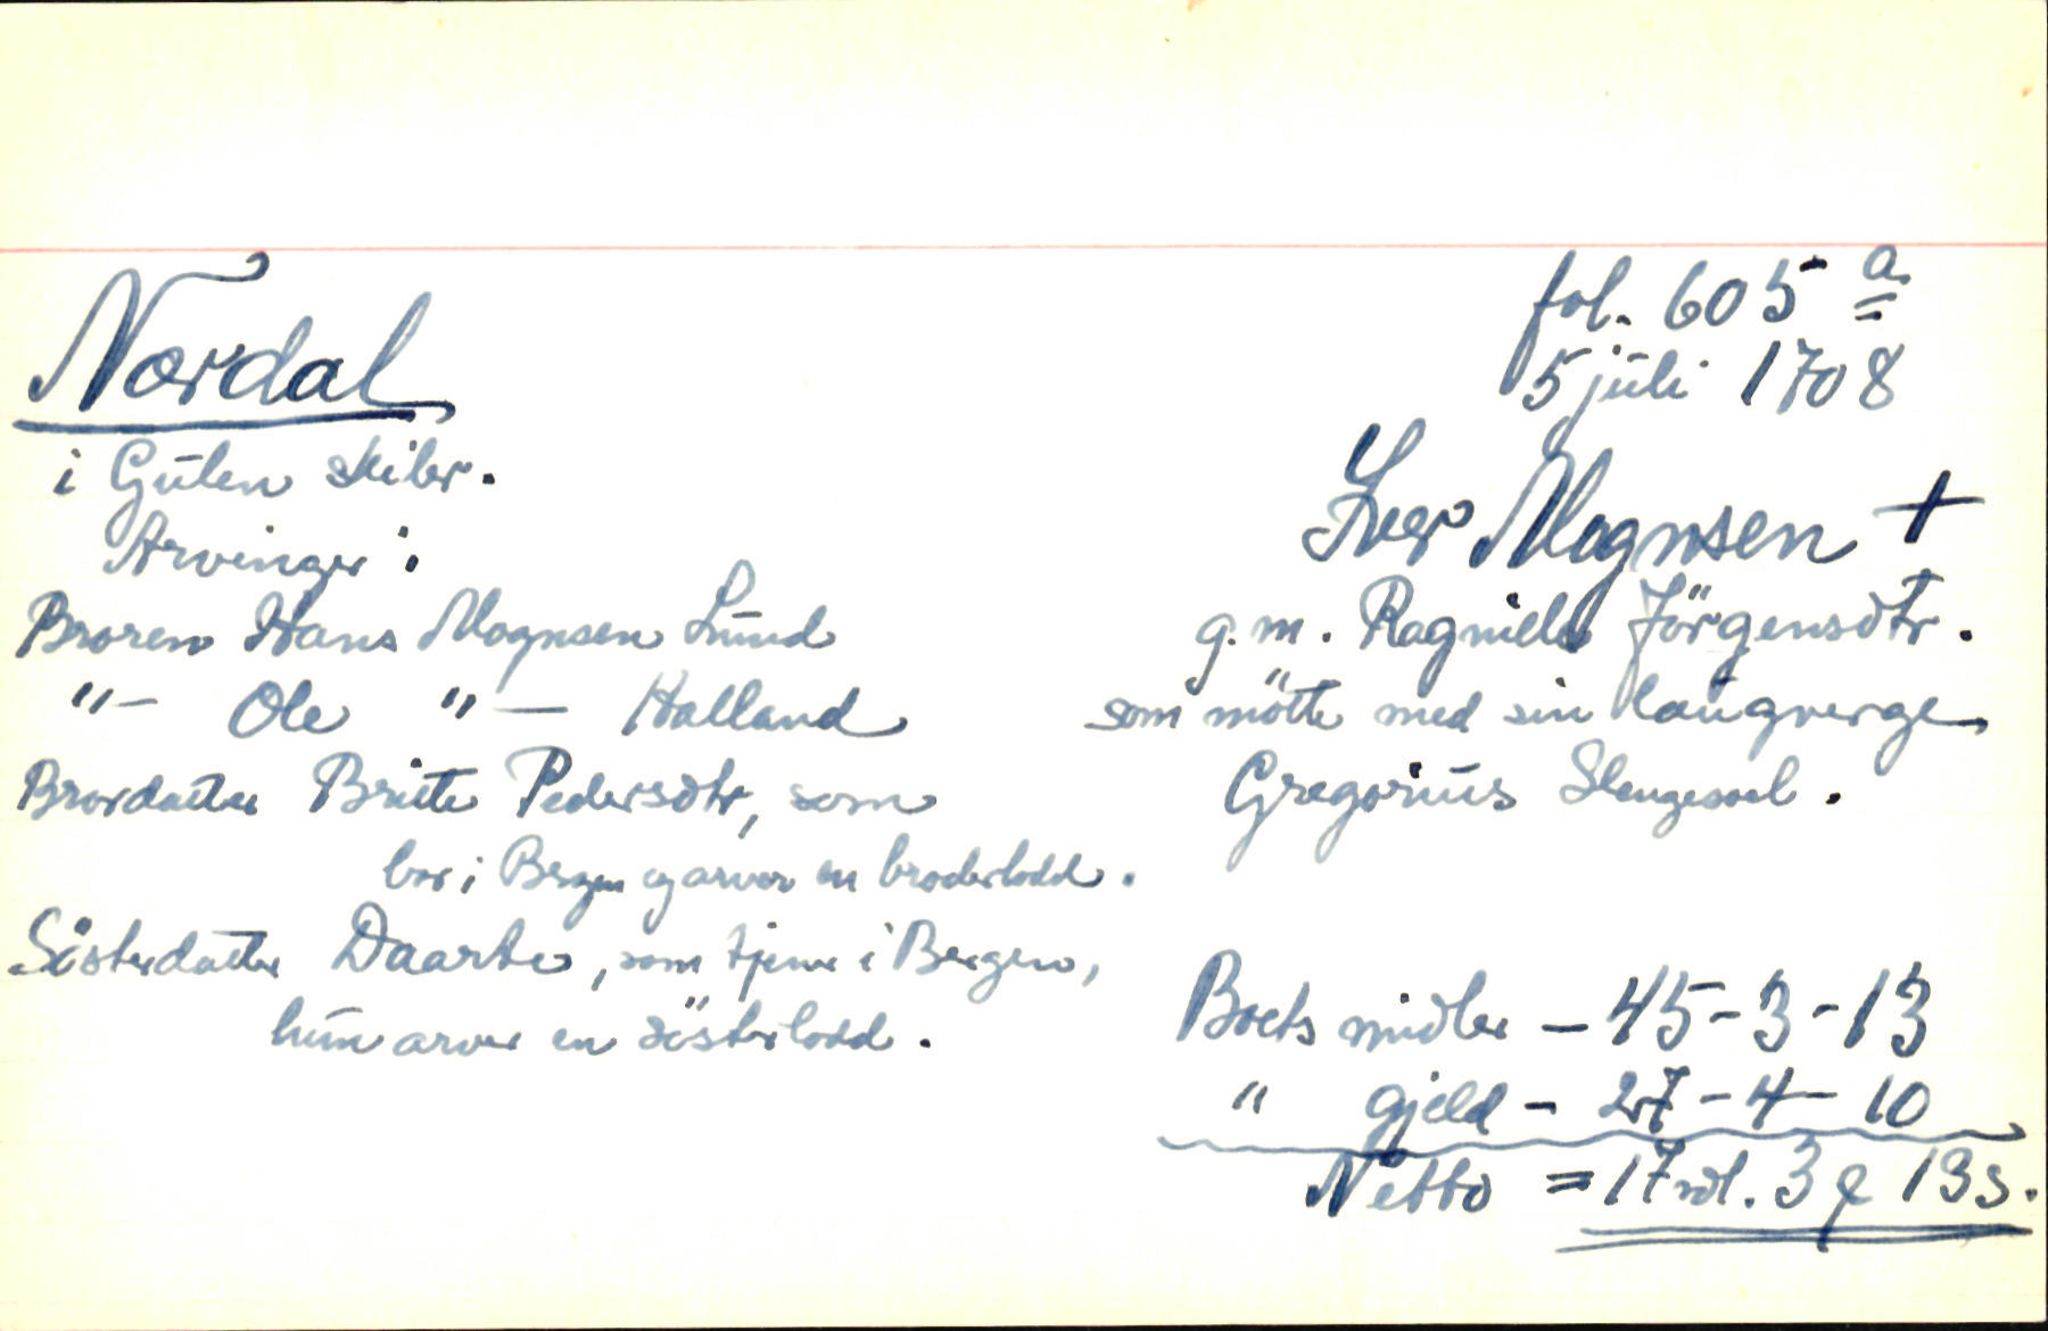 Nordal
i Gulen skibr.
Arvinger:
Broren Hans Mognsen Lund
"— Ole "— Halland
Brordatter Britte Pedersdtr, som
bor i Bergen og arver en broderlodd.
Sösterdatter Daarte, som tjener i Bergen,
hun arver en sösterlodd.
fol. 605 a
5 juli 1708
Iver Mognsen +
g.m. Ragnille Jörgensdtr.
som mötte med sin laugverge
Gregorius
Boets midler – 45 – 3 – 13
" gjeld – 27 – 4 – 10
Netto = 17 rdl. 3 q 13 s.